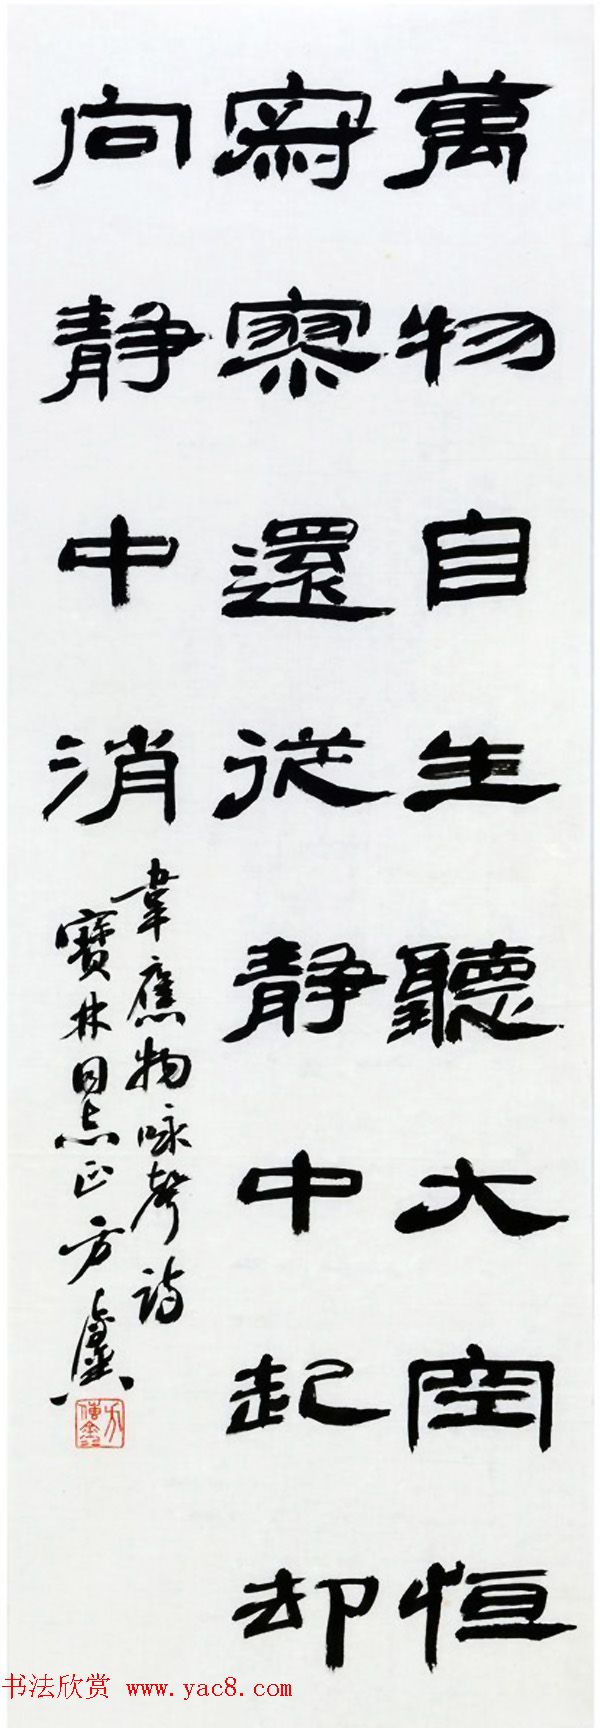 萬物自生聽大空恒
寂寥還從静中起却
向静中消
韋應物咏聲詩
寶林同志正方傳鑫
方傳鑫
书法欣赏 www.yac8.com